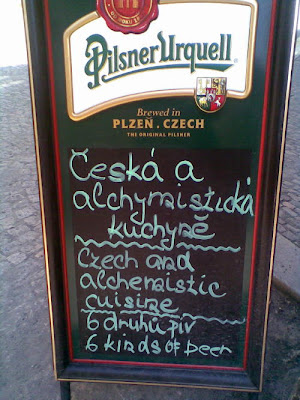 Pilsner Urquell
Brewed in
PLZEŇ, CZECH
THE ORIGINAL PILSNER
Česká a
alchymistická
kuchyně
Czech and
alchemistic
cuisine
6 druhů piv
6 kinds of beer